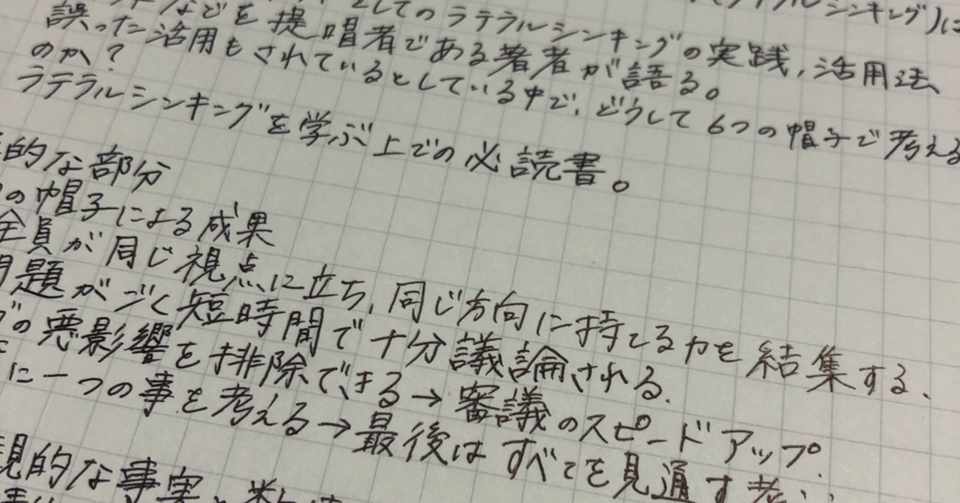 してのラテラルシンキングの実践，活用法，
などを提唱者である著者が語る。
誤った活用もされているとしている中で，どうして6つの帽子で考える
のか？
ラテラルシンキングを学ぶ上での必読書。
的な部分
の帽子による成果
全員が同じ視点に立ち，同じ方向に持てる力を結集する．
問題がごく短時間で十分議論される．
の悪影響を排除できる→審議のスピードアップ
に一つの事を考える→最後はすべてを見通す
観的な事実と